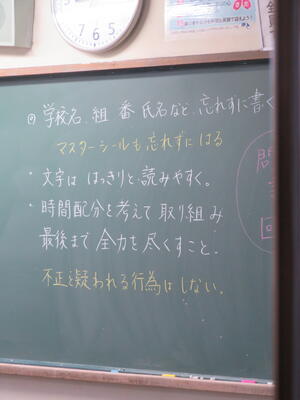 ◎ 学校名、組 番 氏名など、忘れずに書く
マスターシールも忘れずにはる
・文字は はっきりと 読みやすく。
・時間配分を考えて 取り組み
最後まで 全力を尽くすこと。
不正と疑われる行為はしない。
問
回